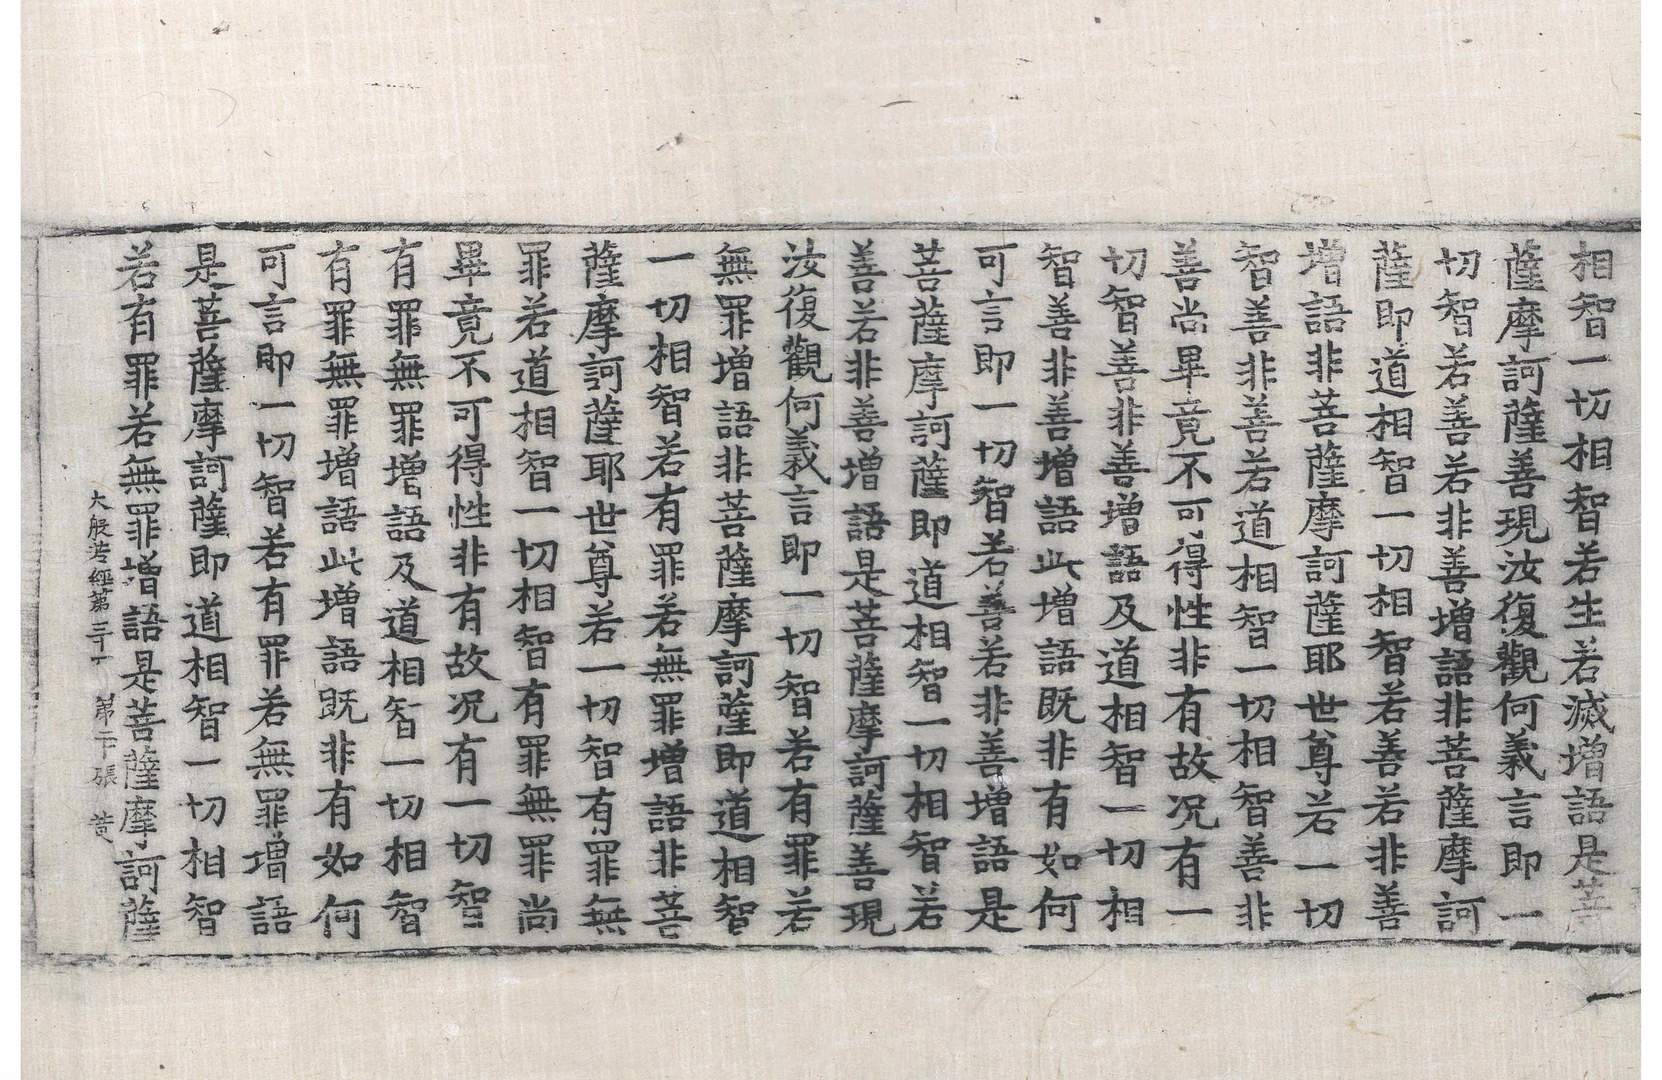 相智一切相智若生若滅增語是菩
薩摩訶薩善現汝復觀何義言即一
切智若善若非善增語非菩薩摩訶
薩即道相智一切相智若善若非善
增語非菩薩摩訶薩耶世尊若一切
智善非善若道相智一切相智善非
善尚畢竟不可得性非有故况有一
切智善非善增語及道相智一切相
智善非善增語此增語既非有如何
可言即一切智若善若非善增語是
菩薩摩訶薩即道相智一切相智若
善若非善增語是菩薩摩訶薩善現
汝復觀何義言即一切智若有罪若
無罪增語非菩薩摩訶薩即道相智
一切相智若有罪若無罪增語非菩
薩摩訶薩耶世尊若一切智有罪無
罪若道相智一切相智有罪無罪尚
畢竟不可得性非有故况有一切智
有罪無罪增語及道相智一切相智
有罪無罪增語此增語既非有如何
可言即一切智若有罪若無罪增語
是菩薩摩訶薩即道相智一切相智
若有罪若無罪增語是菩薩摩訶薩
大般若經第三十一 第二十張 黄